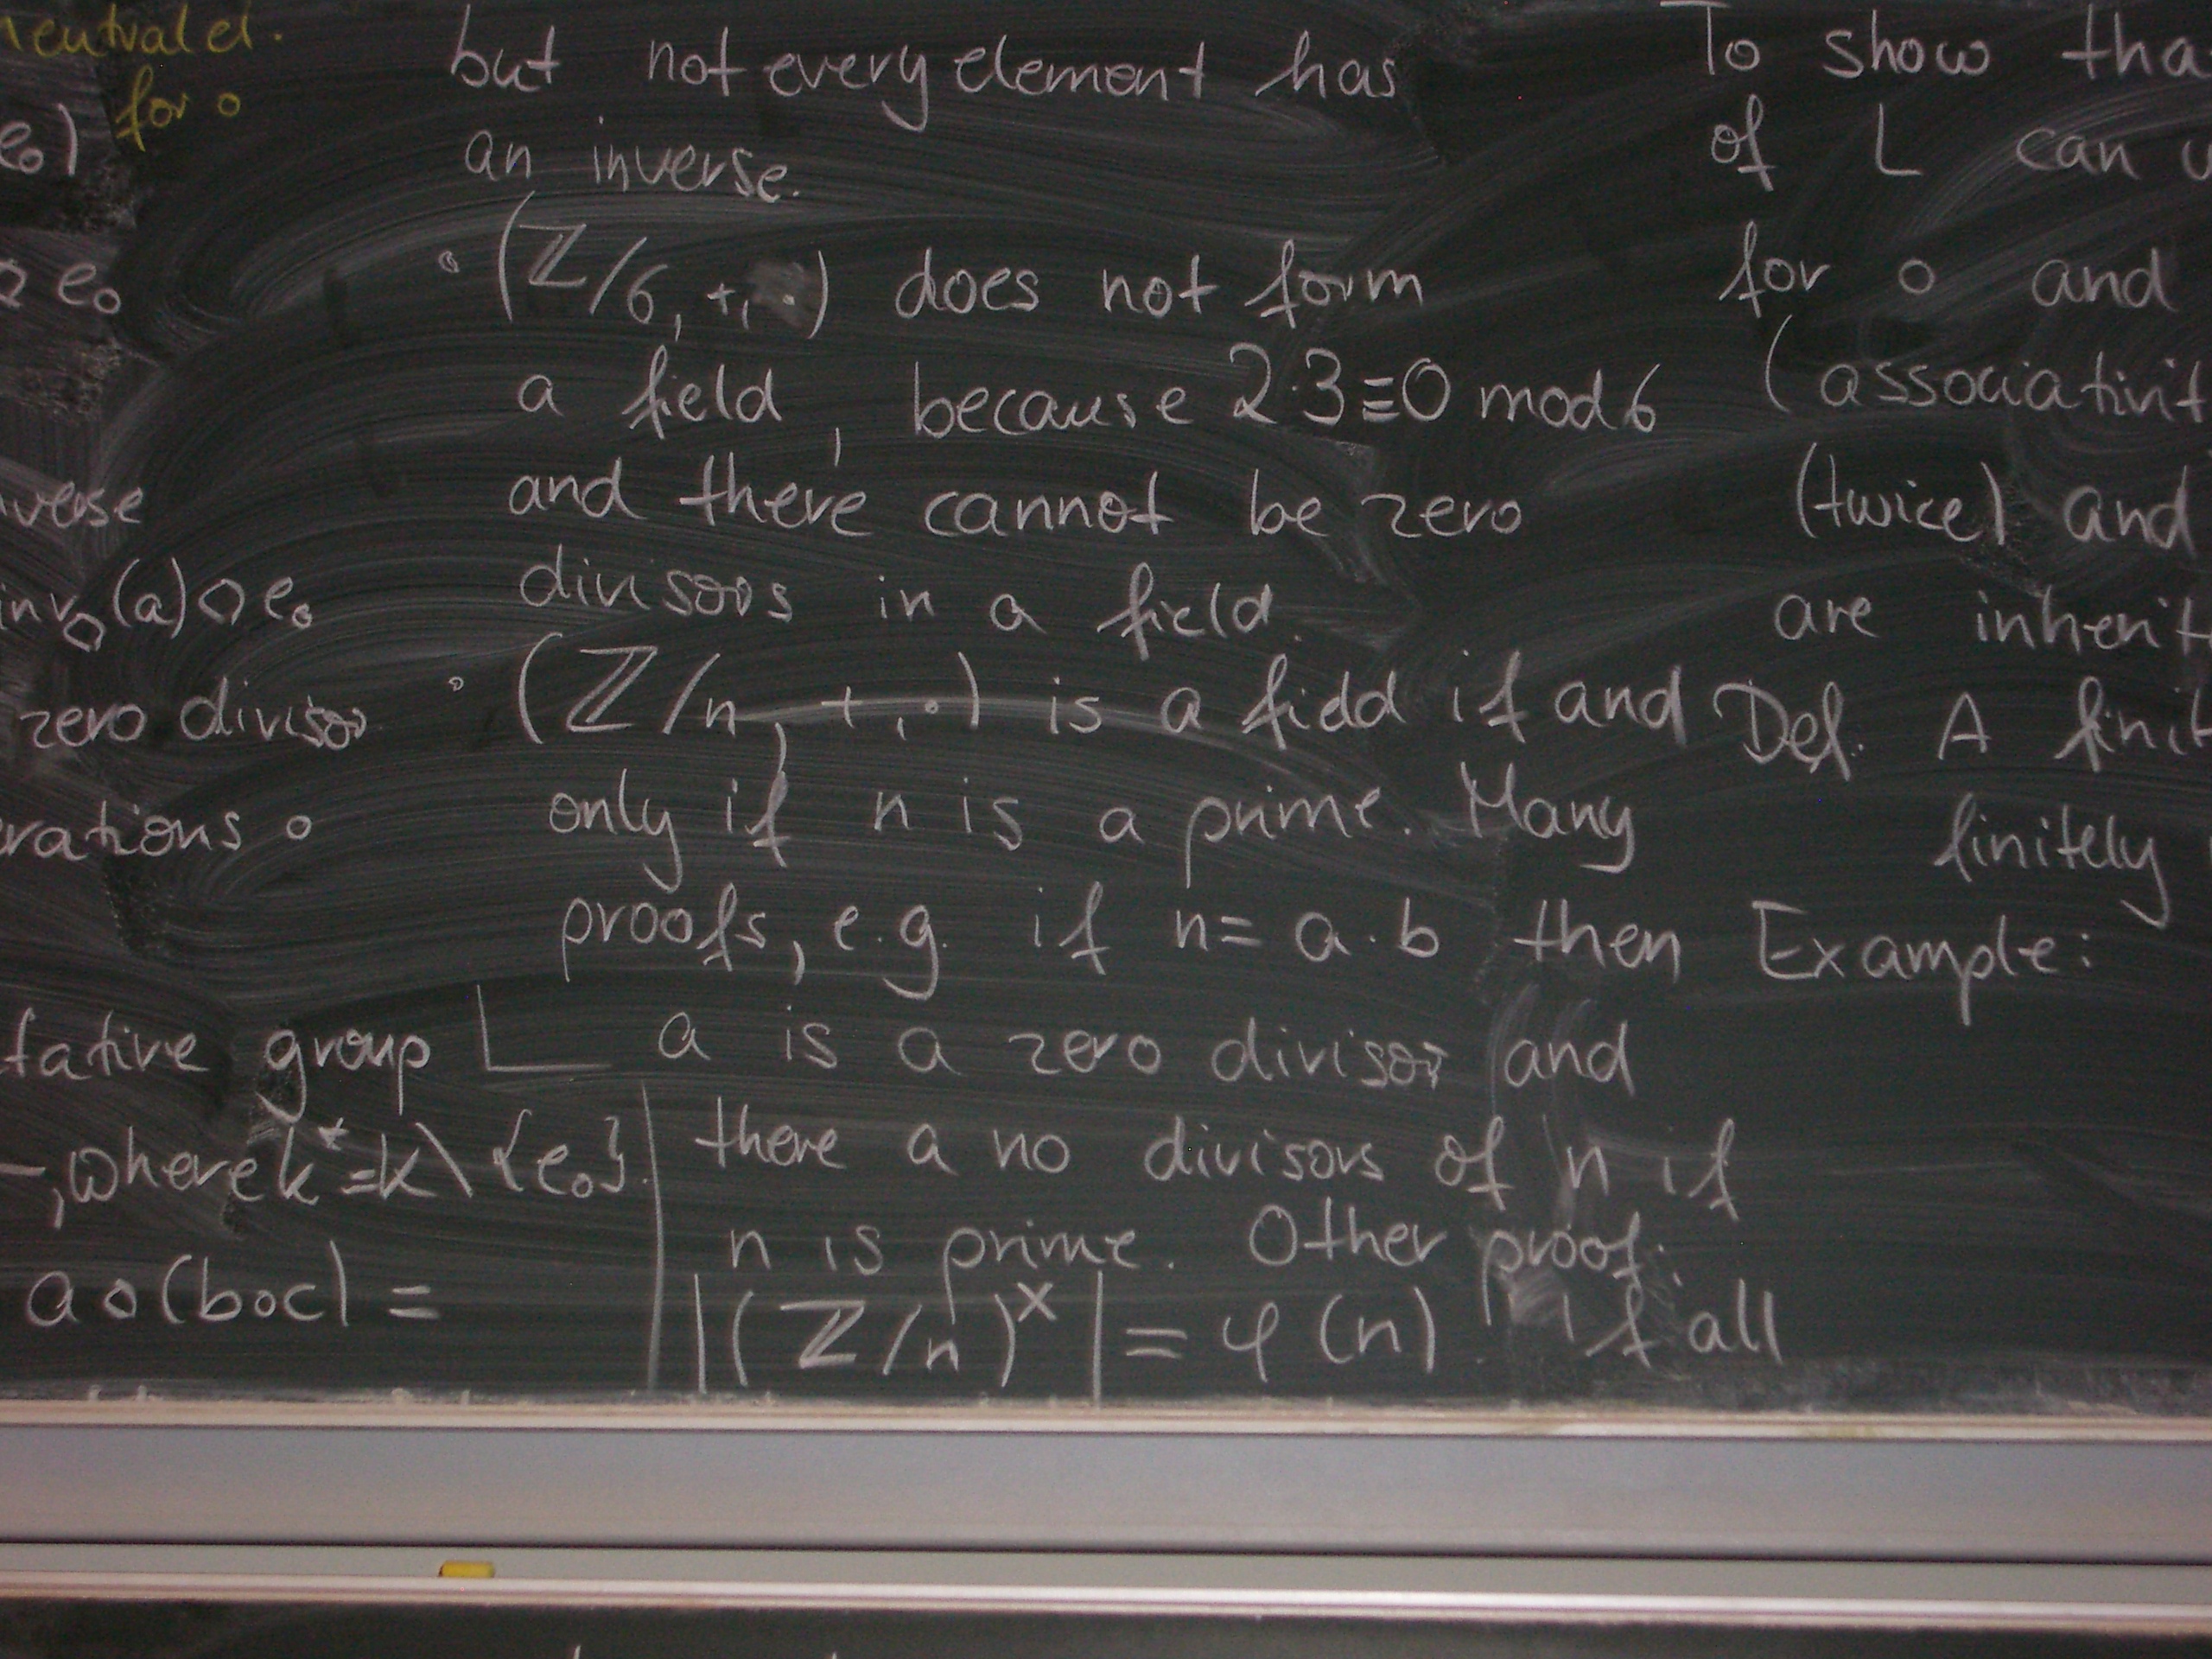 neutral el.
for ∘
e₀)
e₀
verse
inv₀(a)◇e₀
zero divisor
rations ∘
tative group
, where k*=k\{e₀}.
a◇(b∘c) =
but not every element has
an inverse.
∘ (ℤ/6, +, ·) does not form
a field, because 2·3≡0 mod 6
and there cannot be zero
divisors in a field.
∘ (ℤ/n, +, ·) is a field if and
only if n is a prime. Many
proofs, e.g. if n = a·b then
a is a zero divisor and
there a no divisors of n if
n is prime. Other proof:
|(ℤ/n)ˣ| = φ(n) if all
To show tha
of L can
for ∘ and
(associativit
(twice) and
are inherit
Def. A finit
finitely
Example: